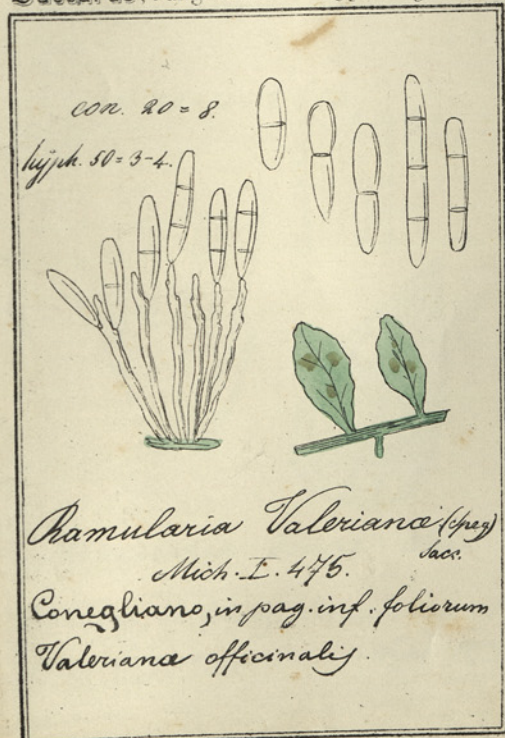 con. 20 = 8.
hyph. 50 = 3-4.
Ramularia Valerianæ (Speg)
Sacc.
Mich. I. 475.
Conegliano, in pag. inf. foliorum
Valerianæ officinalis.